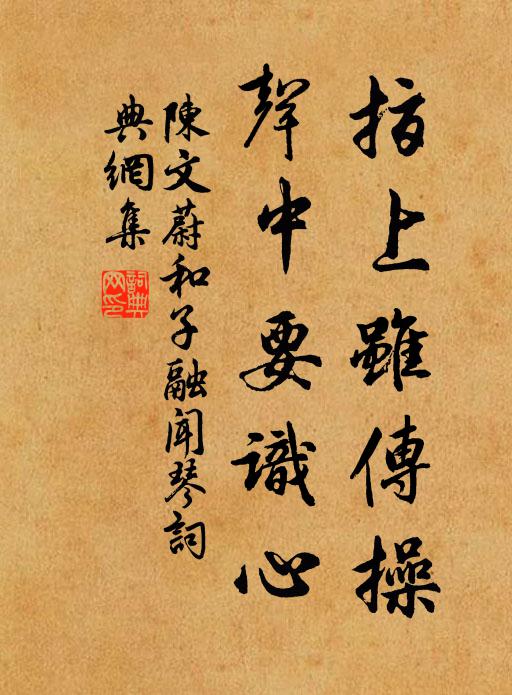 指上雖傳操
聲中要識心
陳文蔚和子融聞琴詞
典網集
詞典網印